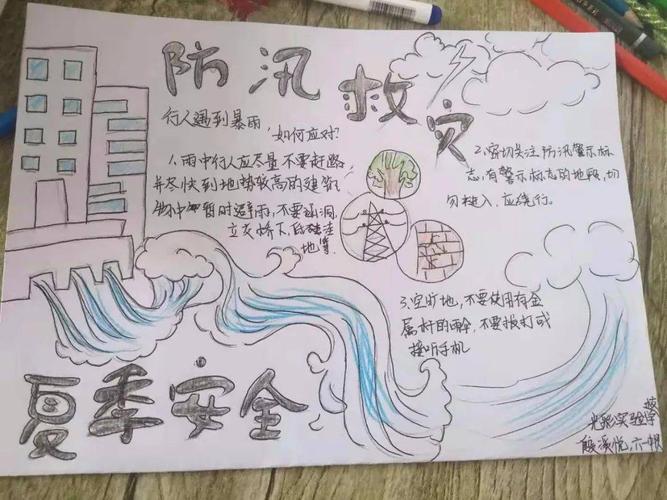 防汛救灾
行人遇到暴雨
如何应对?
1.雨中行人应尽量不要赶路
并尽快到地势较高的建筑
物中暂时避雨,不要涵洞
立交桥下,低洼
地等
2.密切关注防汛警示标
志,有警示标志的地段,切
勿进入,应绕行。
3.空旷地,不要使用有金
属杆的雨伞,不要拨打或
接听手机
夏季安全
光彩实验学
校
六一班